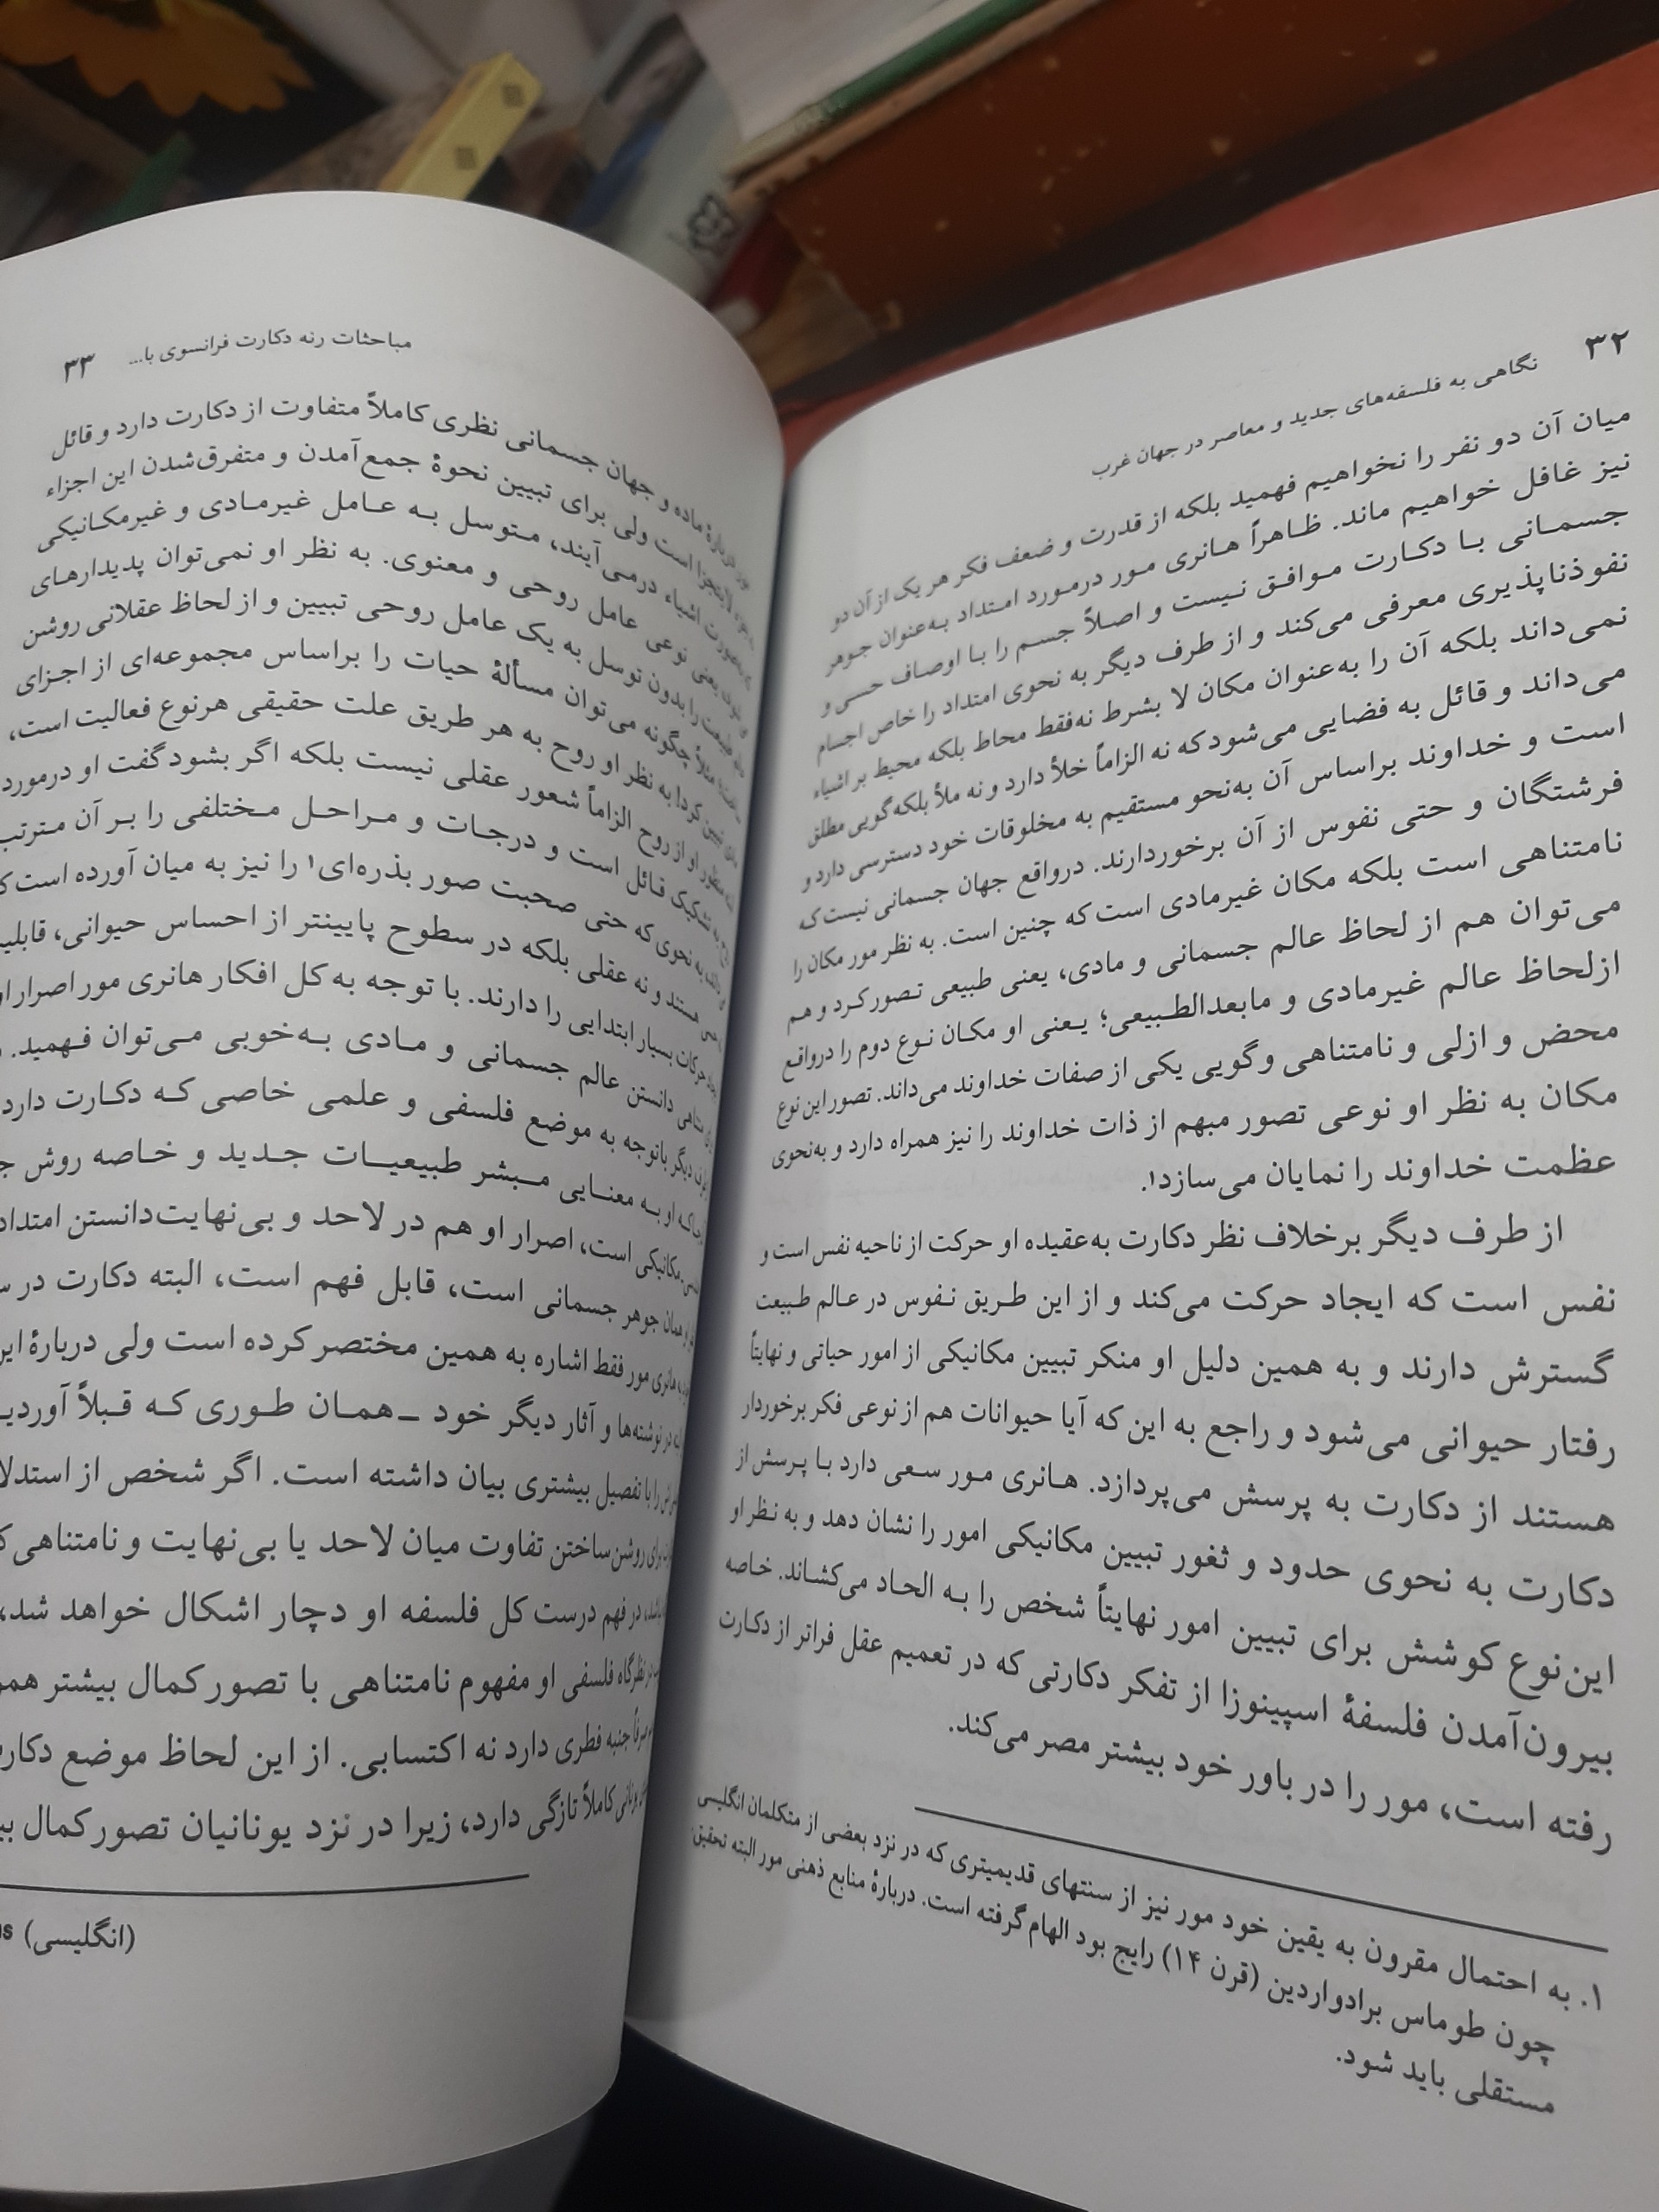 ۳۲ نگاهی به فلسفه‌های جدید و معاصر در جهان غرب
میان آن دو نفر را نخواهیم فهمید بلکه از قدرت و ضعف فکر هر یک از آن دو
نیز غافل خواهیم ماند. ظاهراً هانری مور درمورد امتداد به‌عنوان جوهر
جسمانی با دکارت موافق نیست و اصلاً جسم را با اوصاف حسی و
نفوذناپذیری معرفی می‌کند و از طرف دیگر به نحوی امتداد را خاص اجسام
نمی‌داند بلکه آن را به‌عنوان مکان لا بشرط نه‌فقط محاط بلکه محیط بر اشیاء
می‌داند و قائل به فضایی می‌شود که نه الزاماً خلأ دارد و نه ملأ بلکه گویی مطلق
است و خداوند براساس آن به‌نحو مستقیم به مخلوقات خود دسترسی دارد و
فرشتگان و حتی نفوس از آن برخوردارند. درواقع جهان جسمانی نیست که
نامتناهی است بلکه مکان غیرمادی است که چنین است. به نظر مور مکان را
می‌توان هم از لحاظ عالم جسمانی و مادی، یعنی طبیعی تصور کرد و هم
ازلحاظ عالم غیرمادی و مابعدالطبیعی؛ یعنی او مکان نوع دوم را درواقع
محض و ازلی و نامتناهی و گویی یکی از صفات خداوند می‌داند. تصور این نوع
مکان به نظر او نوعی تصور مبهم از ذات خداوند را نیز همراه دارد و به‌نحوی
عظمت خداوند را نمایان می‌سازد۱.
از طرف دیگر برخلاف نظر دکارت به‌عقیده او حرکت از ناحیه نفس است و
نفس است که ایجاد حرکت می‌کند و از این طریق نفوس در عالم طبیعت
گسترش دارند و به همین دلیل او منکر تبیین مکانیکی از امور حیاتی و نهایتاً
رفتار حیوانی می‌شود و راجع به این‌که آیا حیوانات هم از نوعی فکر برخوردار
هستند از دکارت به پرسش می‌پردازد. هانری مور سعی دارد با پرسش از
دکارت به نحوی حدود و ثغور تبیین مکانیکی امور را نشان دهد و به نظر او
این‌نوع کوشش برای تبیین امور نهایتاً شخص را به الحاد می‌کشاند. خاصه
بیرون‌آمدن فلسفهٔ اسپینوزا از تفکر دکارتی که در تعمیم عقل فراتر از دکارت
رفته است، مور را در باور خود بیشتر مصر می‌کند.
۱. به احتمال مقرون به یقین خود مور نیز از سنتهای قدیمیتری که در نزد بعضی از متکلمان انگلیسی
چون طوماس برادواردین (قرن ۱۴) رایج بود الهام گرفته است. دربارهٔ منابع ذهنی مور البته تحقیق
مستقلی باید شود.
مباحثات رنه دکارت فرانسوی با... ۳۳
دربارهٔ ماده و جهان جسمانی نظری کاملاً متفاوت از دکارت دارد و قائل
لایتجزا است ولی برای تبیین نحوهٔ جمع‌آمدن و متفرق‌شدن این اجزاء
به‌صورت اشیاء درمی‌آیند، متوسل به عامل غیرمادی و غیرمکانیکی
یعنی نوعی عامل روحی و معنوی. به نظر او نمی‌توان پدیدارهای
طبیعت را بدون توسل به یک عامل روحی تبیین و از لحاظ عقلانی روشن
مثلاً چگونه می‌توان مسألهٔ حیات را براساس مجموعه‌ای از اجزای
تبیین کرد! به نظر او روح به هر طریق علت حقیقی هرنوع فعالیت است،
منظور او از روح الزاماً شعور عقلی نیست بلکه اگر بشود گفت او درمورد
به تشکیک قائل است و درجات و مراحل مختلفی را بر آن مترتب
به نحوی که حتی صحبت صور بذره‌ای۱ را نیز به میان آورده است
هستند و نه عقلی بلکه در سطوح پایینتر از احساس حیوانی،
حرکات بسیار ابتدایی را دارند. با توجه به کل افکار هانری مور اصرار
متناهی دانستن عالم جسمانی و مادی به‌خوبی می‌توان فهمید.
دیگر باتوجه به موضع فلسفی و علمی خاصی که دکارت دارد
او به معنایی مبشر طبیعیات جدید و خاصه روش
مکانیکی است، اصرار او هم در لاحد و بی‌نهایت‌دانستن امتداد
همان جوهر جسمانی است، قابل فهم است، البته دکارت در
هانری مور فقط اشاره به همین مختصر کرده است ولی دربارهٔ
در نوشته‌ها و آثار دیگر خود ــ همان طوری که قبلاً
را با تفصیل بیشتری بیان داشته است. اگر شخص از
برای روشن‌ساختن تفاوت میان لاحد یا بی‌نهایت و نامتناهی
در فهم درست کل فلسفه او دچار اشکال خواهد شد،
نظرگاه فلسفی او مفهوم نامتناهی با تصور کمال بیشتر
صرفاً جنبه فطری دارد نه اکتسابی. از این لحاظ موضع
یونانی کاملاً تازگی دارد، زیرا در نزد یونانیان تصور کمال
(انگلیسی)